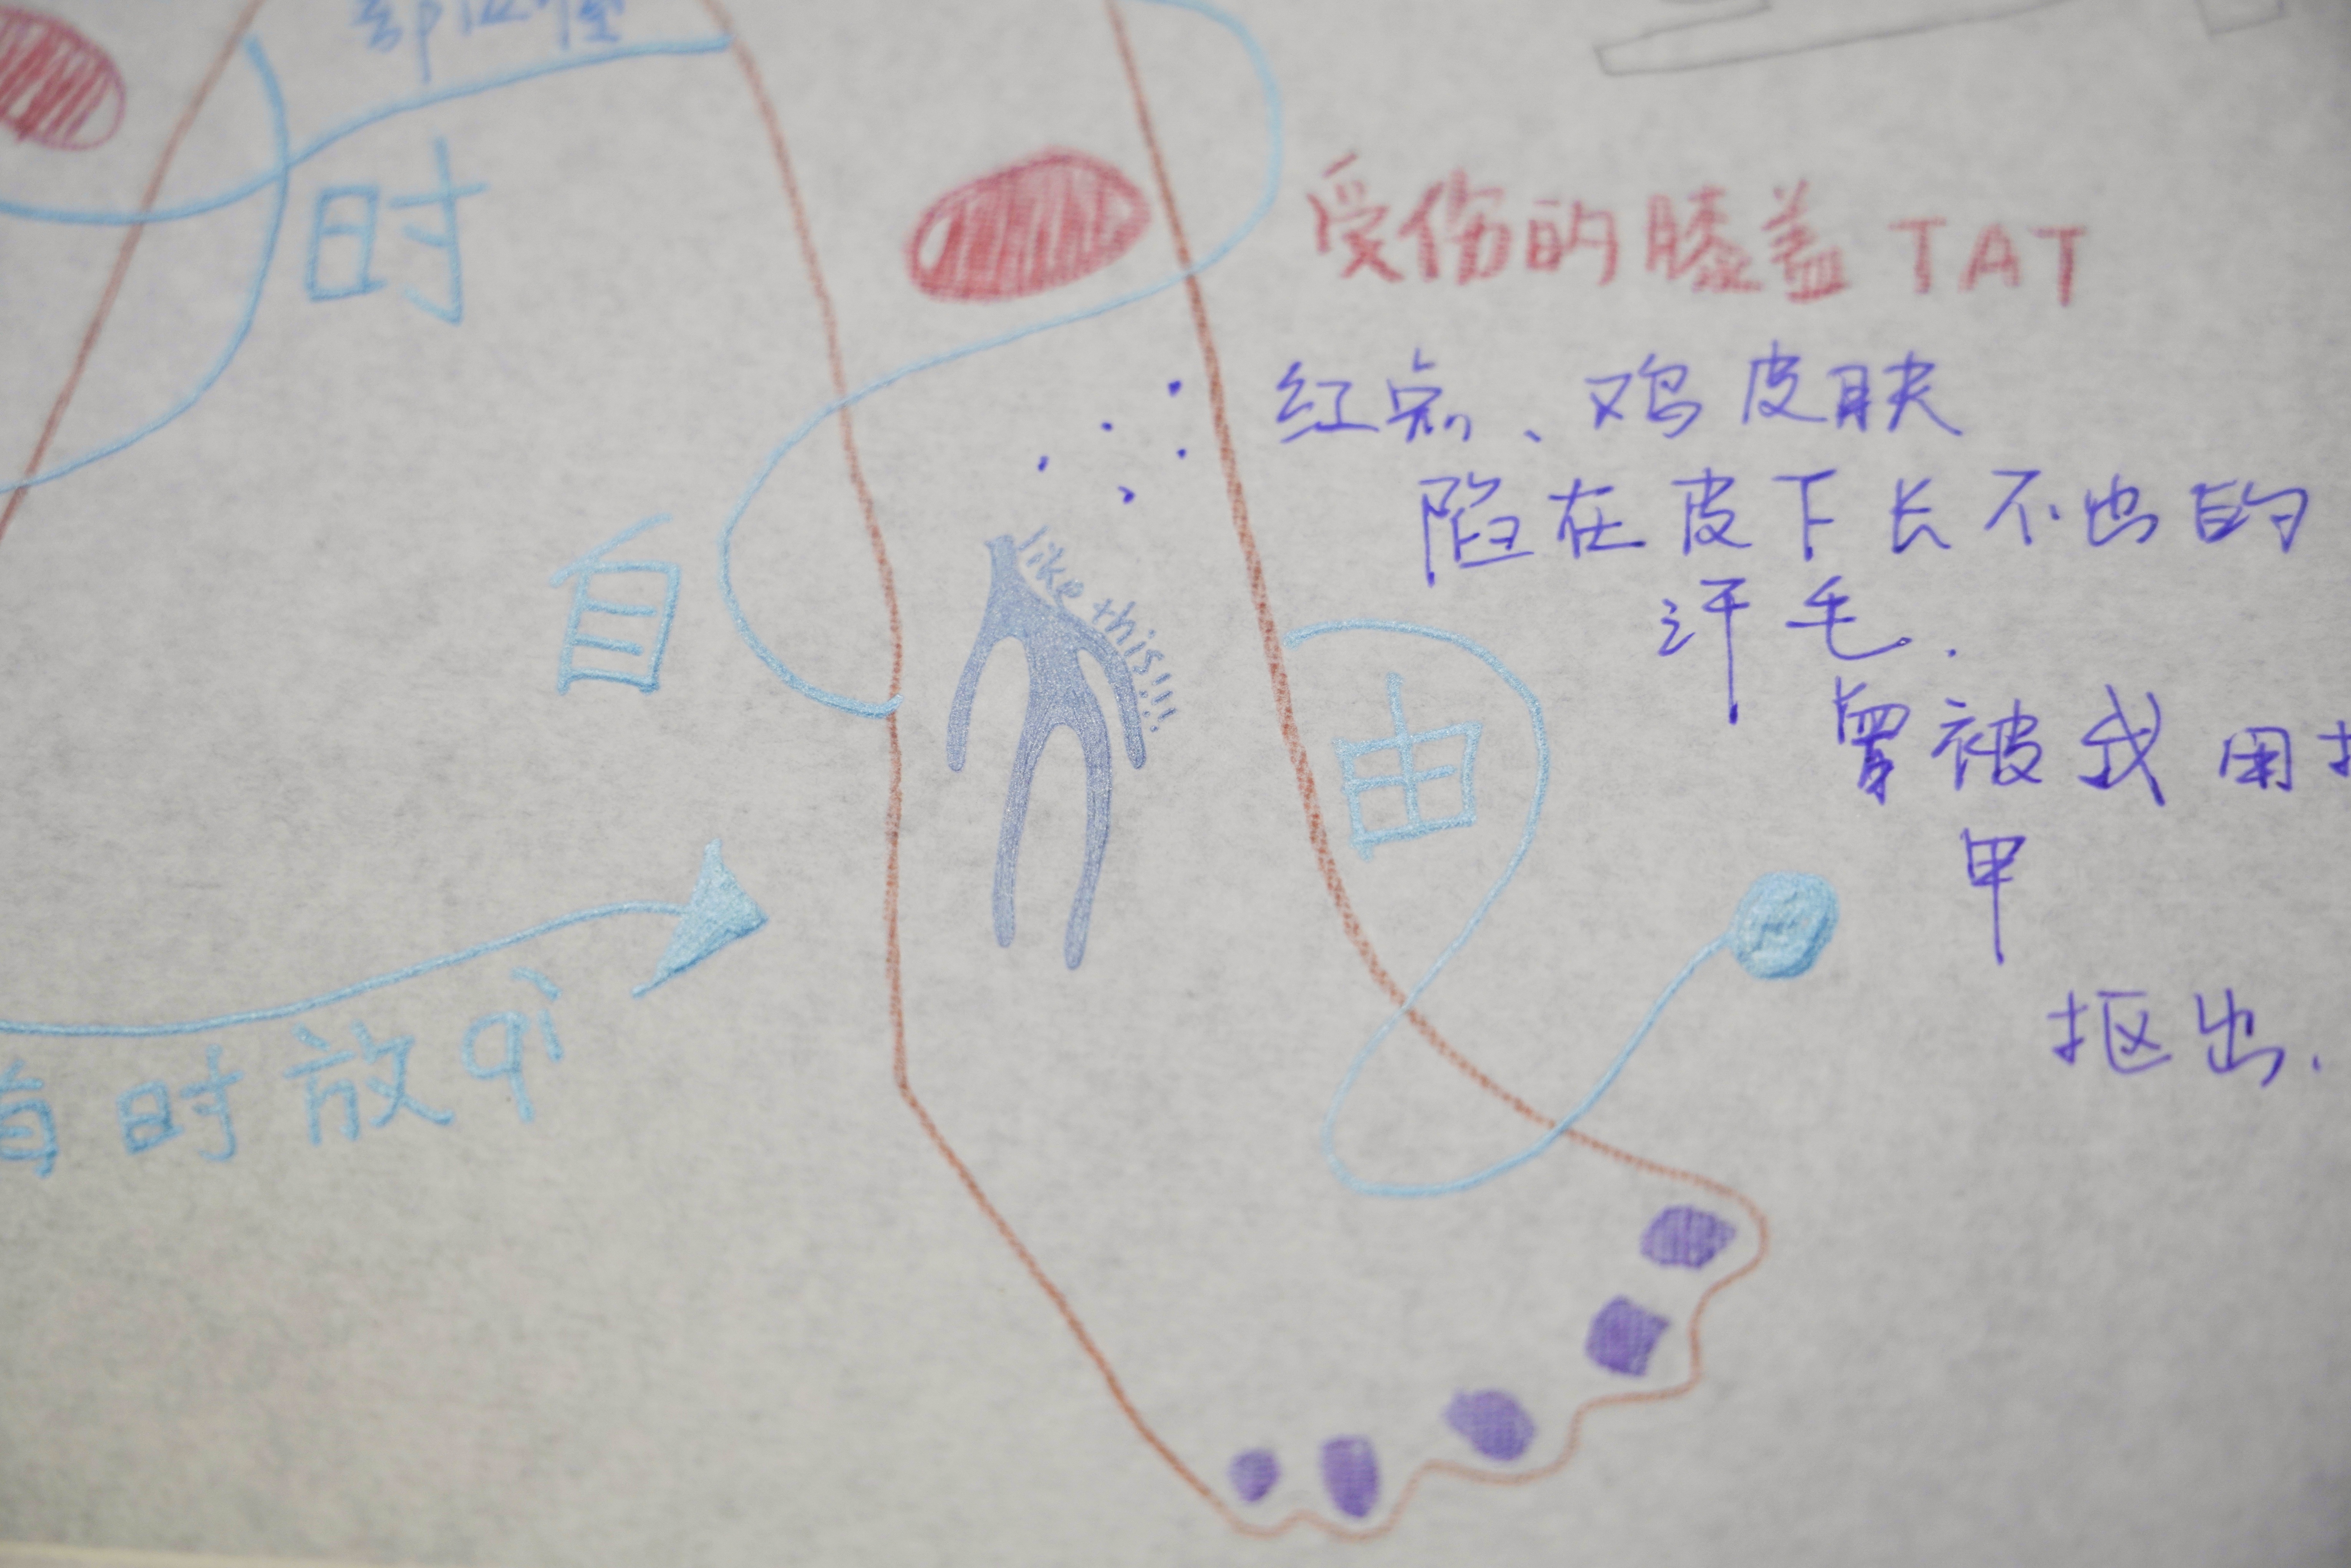 时
受伤的膝盖 TAT
红点、鸡皮肤
陷在皮下长不出的
汗毛.
曾被我用
甲
抠出.
like this!!!
自
由
时放qì